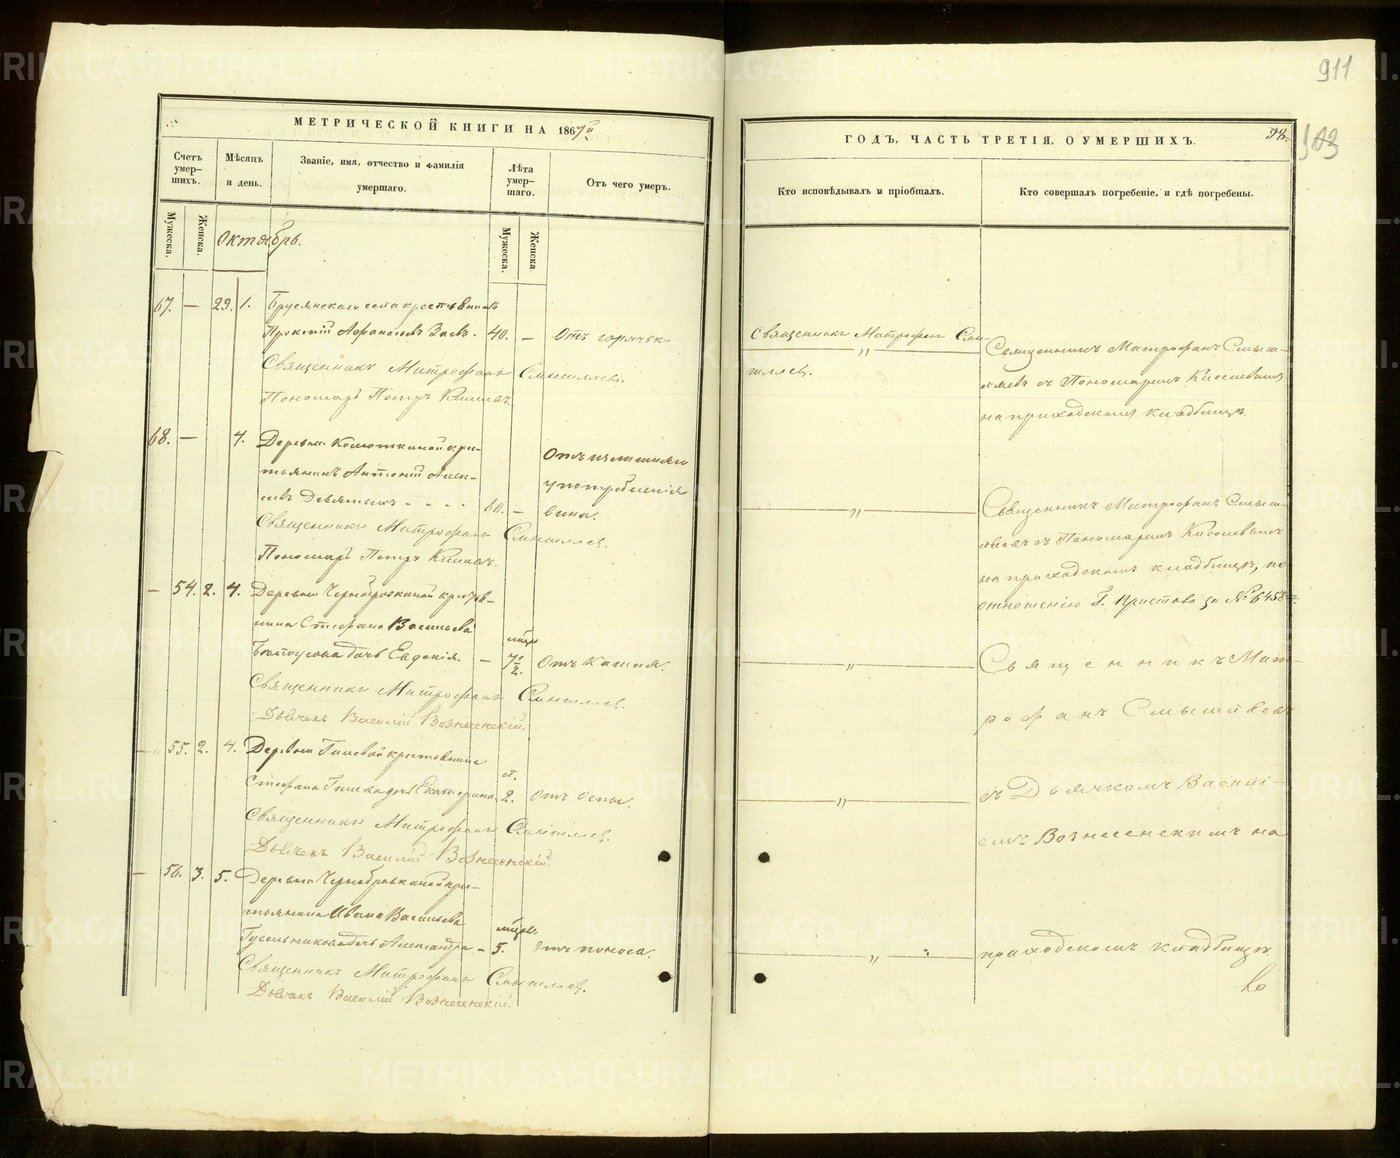 911
МЕТРИЧЕСКОЙ КНИГИ НА 1867й
Счетъ умер-
шихъ.
Мѣсяцъ
и день.
Званіе, имя, отчество и фамилія
умершаго.
Лѣта
умер-
шаго.
Отъ чего умеръ.
Мужеска.
Женска.
Мужеска.
Женска
Октябрь.
67. — 29. 1. Брусянскаго села крестьянинъ
Афанасьевъ 40. — Отъ горячки
Священникъ Митрофанъ Смышляевъ.
Пономарь Петръ
68. — 4. Деревни Колюткиной кре-
стьянинъ Антоній Алек-
Девятыхъ - - - - 60. —
Отъ излишняго
употребленія
вина.
Священникъ Митрофанъ Смышляевъ.
Пономарь Петръ
— 54. 2. 4. Деревни Чернобровкиной крестьян-
нина Стефана Васильева
дочь Евдокія. — мѣс. 7 1/2. Отъ кашля.
Священникъ Митрофанъ Смышляевъ.
Дьячекъ Василій Вознесенскій.
— 55. 2. 4. Деревни Гилевой крестьянина
Стефана Гилева дочь Екатерина. 2. Отъ оспы.
Священникъ Митрофанъ Смышляевъ.
Дьячекъ Василій Вознесенскій.
— 56. 3. 5. Деревни Чернобровкиной кре-
стьянина Ивана Васильева
дочь Александра — мѣс. 5. Отъ поноса.
Священникъ Митрофанъ Смышляевъ.
Дьячекъ Василій Вознесенскій.
ГОДЪ, ЧАСТЬ ТРЕТІЯ, О УМЕРШИХЪ.
98.
Кто исповѣдывалъ и пріобщалъ.
Кто совершалъ погребеніе, и гдѣ погребены.
Священникъ Митрофанъ Смы-
шляевъ.
Священникъ Митрофанъ Смыш-
ляевъ съ Пономаремъ
на приходскомъ кладбищѣ.
— " —
Священникъ Митрофанъ Смыш-
ляевъ съ Пономаремъ
на приходскомъ кладбищѣ, по
отношенію Г. Пристава за №
— " —
Священникъ Мит-
рофанъ Смышляевъ
— " —
съ Дьячкомъ Василі-
емъ Вознесенскимъ на
— " —
приходскомъ кладбищѣ.
METRIKI.GASO-URAL.RU